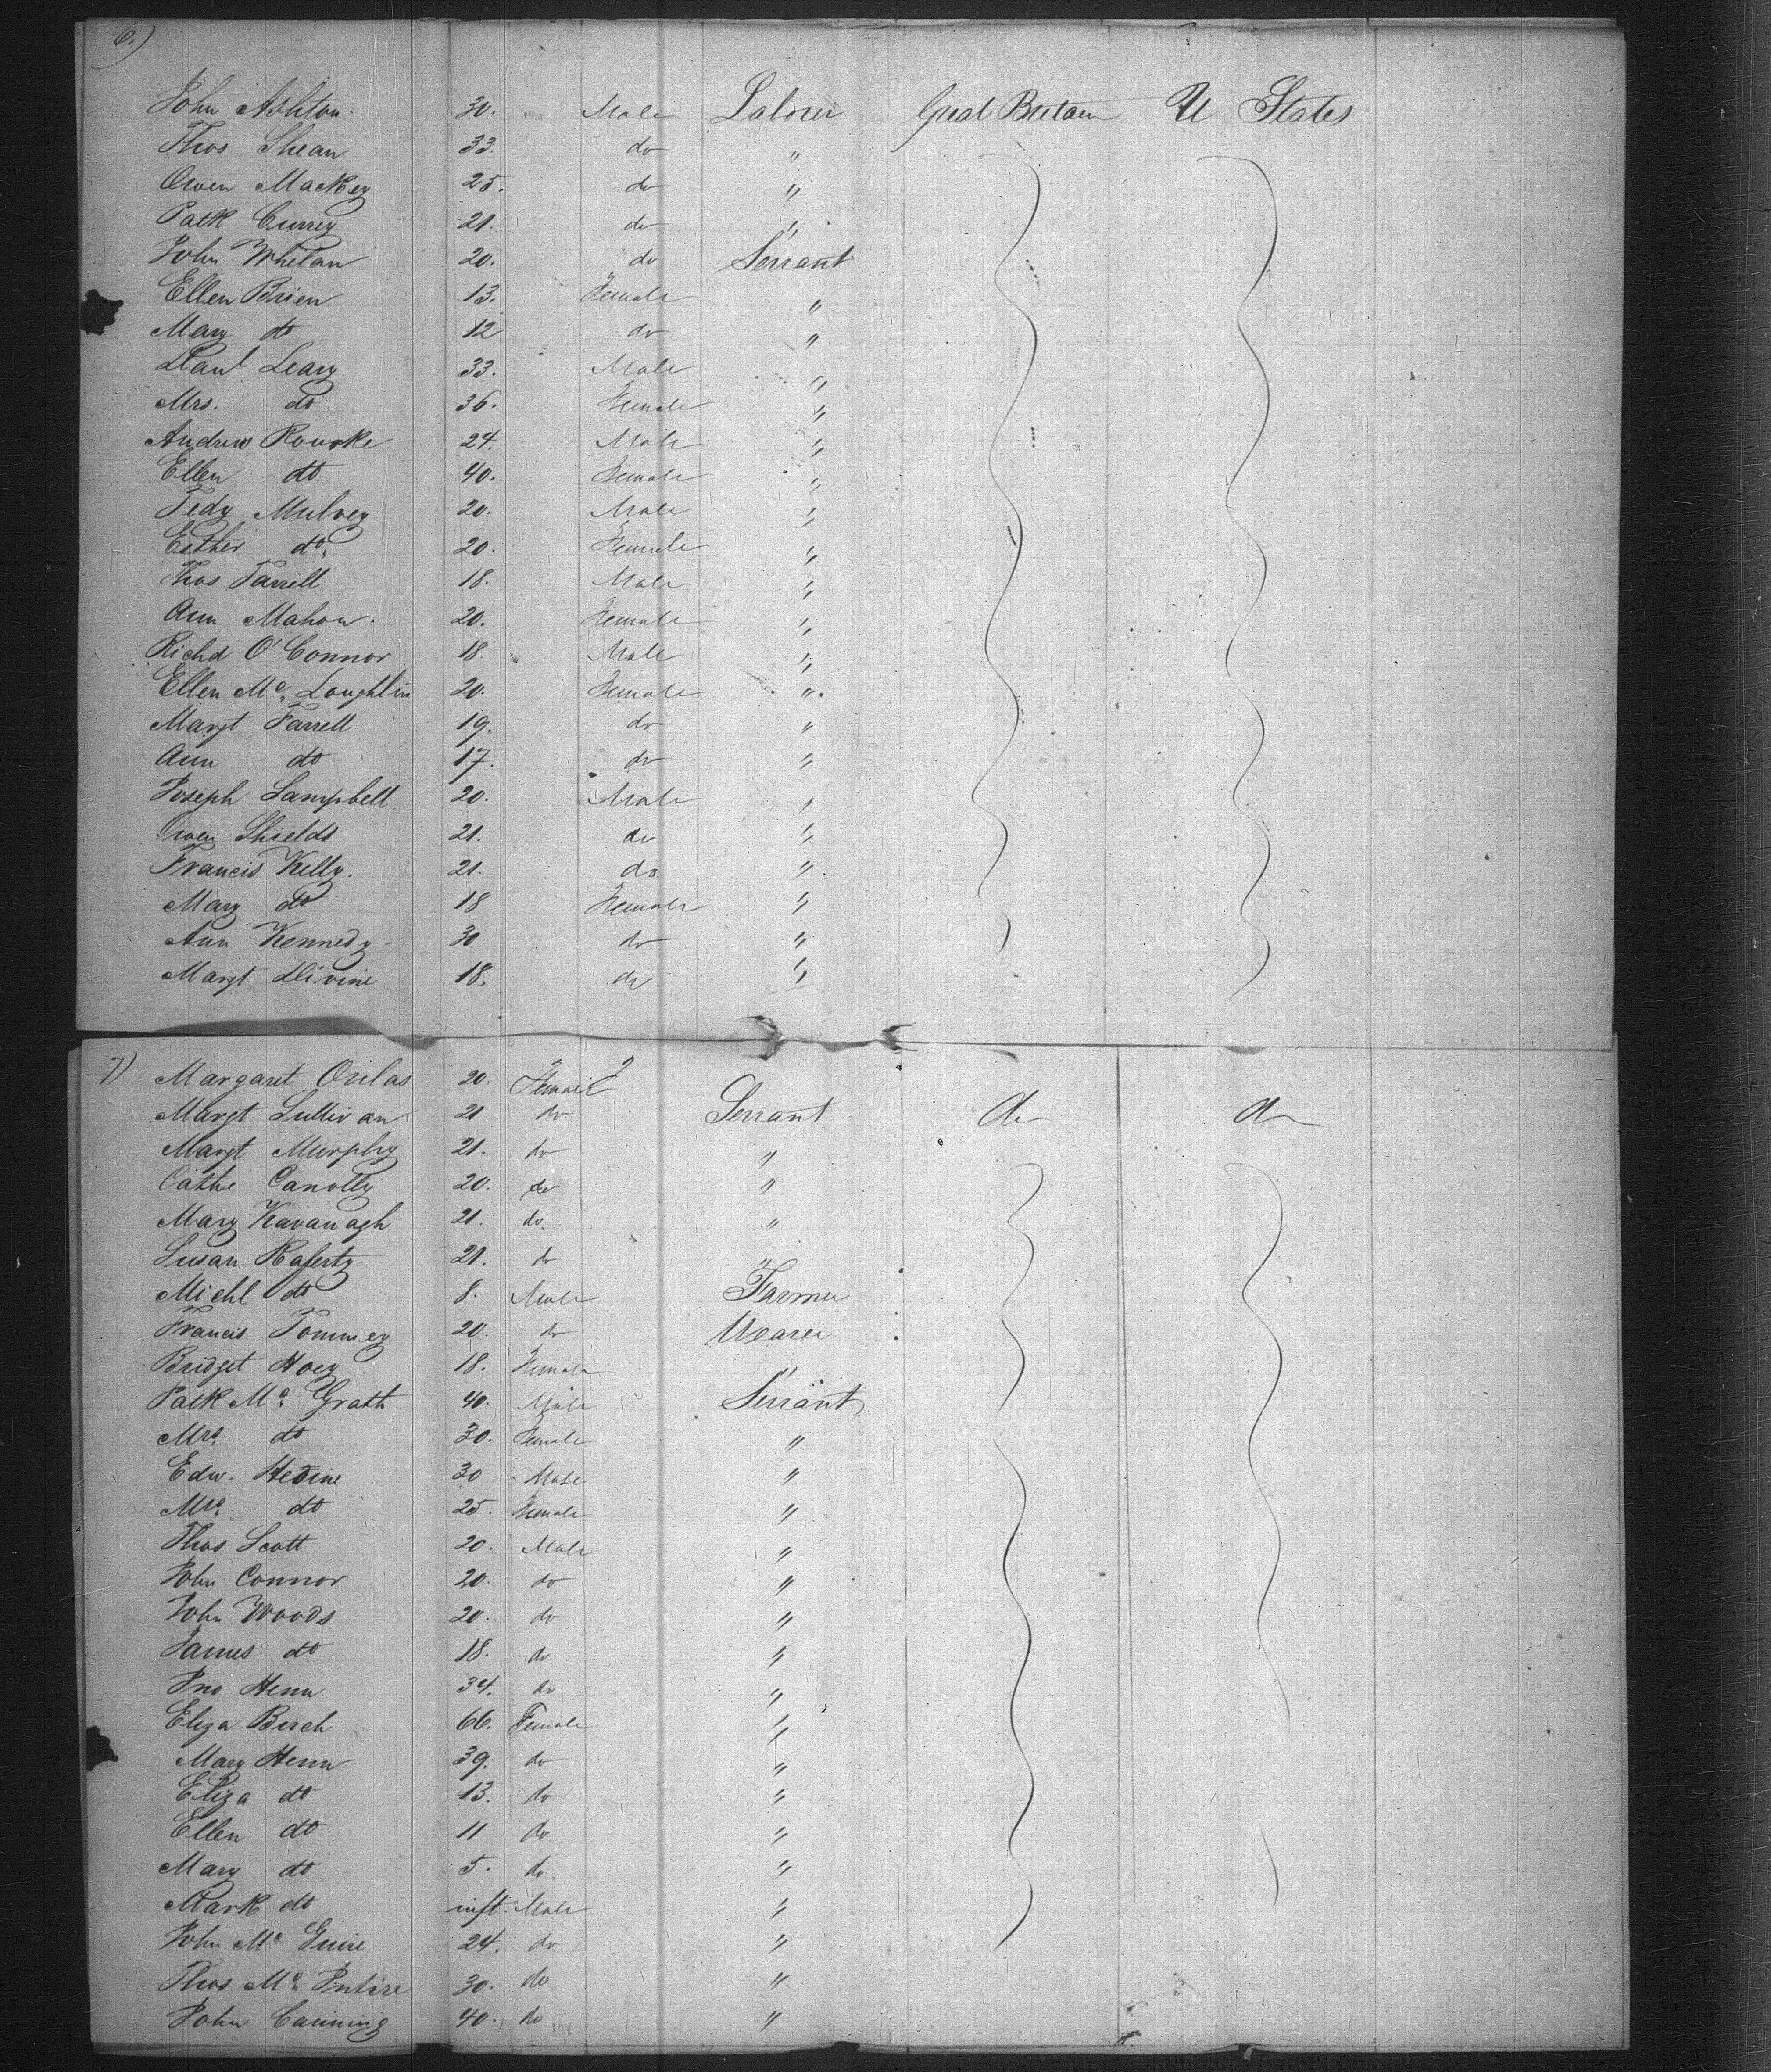 6.)
John Ashton. 30. Male Laborer Great Britain U States
Thos Shean 33. do "
Owen Mackey 25. do "
Patk Currey 21. do "
John Whelan 20. do Servant
Ellen Brien 13. Female "
Mary do 12 do "
Danl Leary 33. Male "
Mrs. do 36. Female "
Andrew Rourke 24. Male "
Ellen do 40. Female "
Tedy Mulvey 20. Male "
Esther do. 20. Female "
Thos Farrell 18. Male "
Ann Mahon. 20. Female "
Richd O'Connor 18. Male "
Ellen Mc Loughlin 20. Female "
Margt Farrell 19. do "
Ann do 17. do "
Joseph Campbell 20. Male "
Owen Shields 21. do "
Francis Kelly. 21. do. "
Mary do 18 Female "
Ann Kennedy 30 do "
Margt Divine 18. do "
7)
Margaret 20. Female
Margt Sullivan 21 do Servant do do
Margt Murphy 21. do "
Cathe Canolly 20. do "
Mary Kavanagh 21. do. "
Susan Raferty 21. do "
Michl do 8. Male Farmer
Francis Tommey 20. do Weaver
Bridget Hoey 18. Female "
Patk Mc Grath 40. Male Servant
Mrs. do 30. Female "
Edw. 30 Male "
Mrs. do 25. Female "
Thos Scott 20. Male "
John Connor 20. do "
John Woods 20. do "
James do 18. do "
Jno Henn 34. do "
Eliza Birch 66. Female "
Mary Henn 39. do "
Eliza do 13. do "
Ellen do 11 do "
Mary do 5. do "
Mark do inft. Male "
John Mc Guire 24. do "
Thos Mc Intire 30. do "
John Canning 40. do "